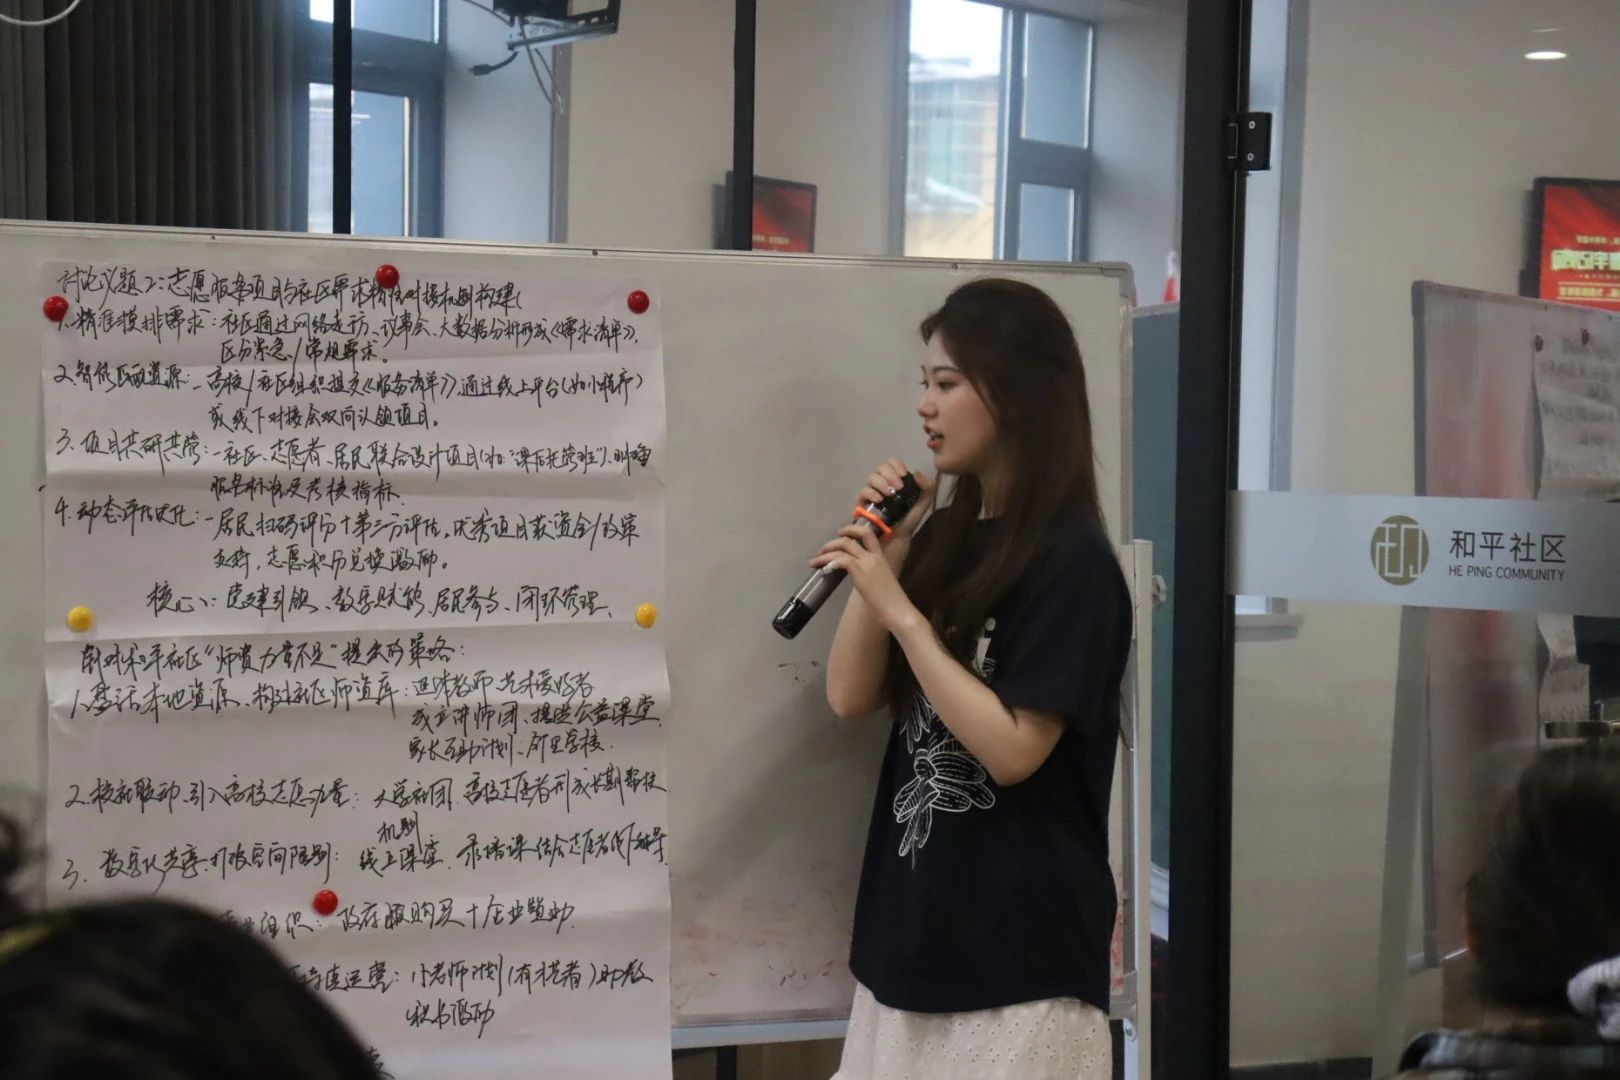 讨论议题2：志愿服务项目与社区需求精准对接机制构建
1、精准摸排需求：社区通过网络走访、议事会、大数据分析形成《需求清单》，
区分紧急/常规需求。
2、智能匹配资源：－高校/社区组织提交《服务清单》，通过线上平台（如小程序）
或线下对接会双向认领项目。
3、项目共研共管：－社区、志愿者、居民联合设计项目（如："课后托管班"），明确
服务标准及考核指标
4、动态评估优化：－居民扫码评分＋第三方评估。优秀项目获资金/政策
支持，志愿积分兑换激励。
核心：党建引领、数字赋能、居民参与、闭环管理、
针对和平社区"师资力量不足"提出的策略：
1、盘活本地资源、构建社区师资库：退休教师、艺术爱好者
成立讲师团、提供公益课堂
家长互助计划、邻里学校.
2、校社联动、引入高校志愿力量：大学社团、高校志愿者形成长期帮扶
机制
3、数字化共享、打破空间限制：线上课堂、录播课结合志愿者线下辅导
组织：政府购买＋企业赞助
持续运营：小老师计划（有才艺者）助教
积分激励
和平社区
HE PING COMMUNITY